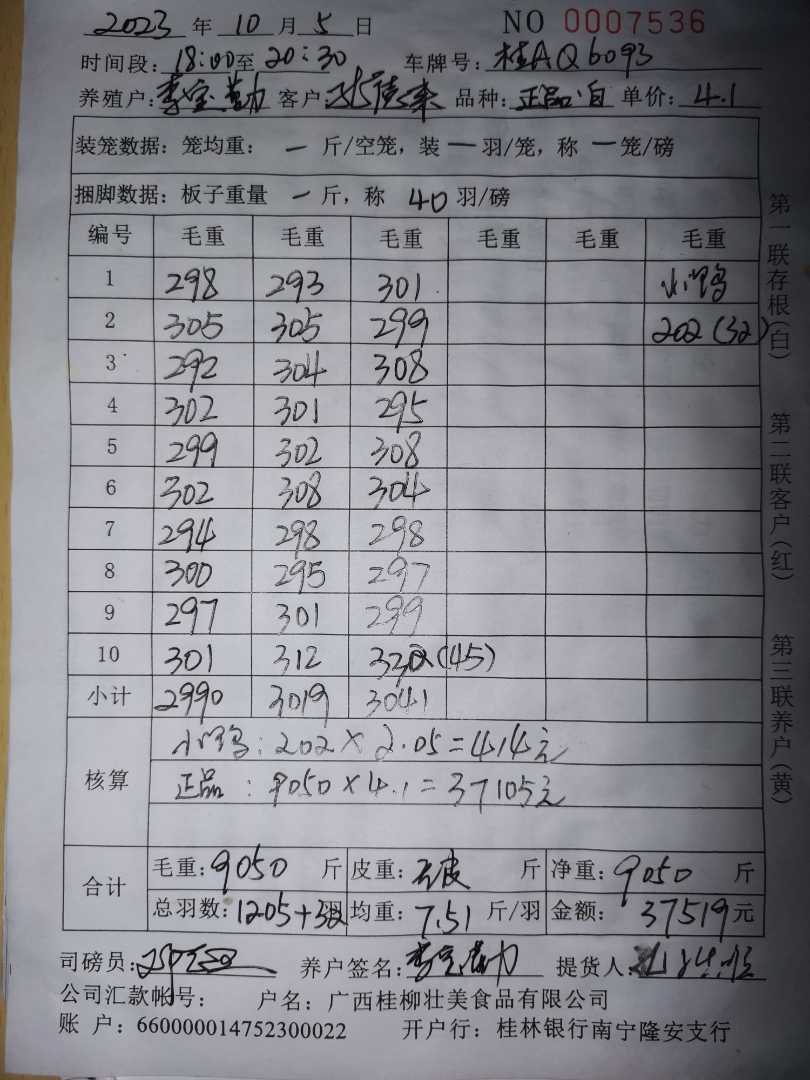 2023 年 10 月 5 日 NO 0007536
时间段：18:00至20:30 车牌号：桂AQ6093
养殖户：李宝勤 客户： 品种：正品白 单价：4.1
装笼数据：笼均重： 一 斤/空笼，装 一 羽/笼，称 一 笼/磅
捆脚数据：板子重量 一 斤，称 40 羽/磅
编号 毛重 毛重 毛重 毛重 毛重 毛重
1 298 293 301 小鸭
2 305 305 299 202（32）
3 292 304 308
4 302 301 295
5 299 302 308
6 302 308 304
7 294 298 298
8 300 295 297
9 297 301 299
10 301 312 332（45）
小计 2990 3019 3041
核算
小鸭：202×2.05=414元
正品：9050×4.1=37105元
合计
毛重：9050 斤 皮重：无皮 斤 净重：9050 斤
总羽数：1205+32羽 均重：7.51 斤/羽 金额：37519元
司磅员： 养户签名：李宝勤 提货人：
公司汇款帐号： 户名：广西桂柳壮美食品有限公司
账 户：660000014752300022 开户行：桂林银行南宁隆安支行
第一联存根（白） 第二联客户（红） 第三联养户（黄）